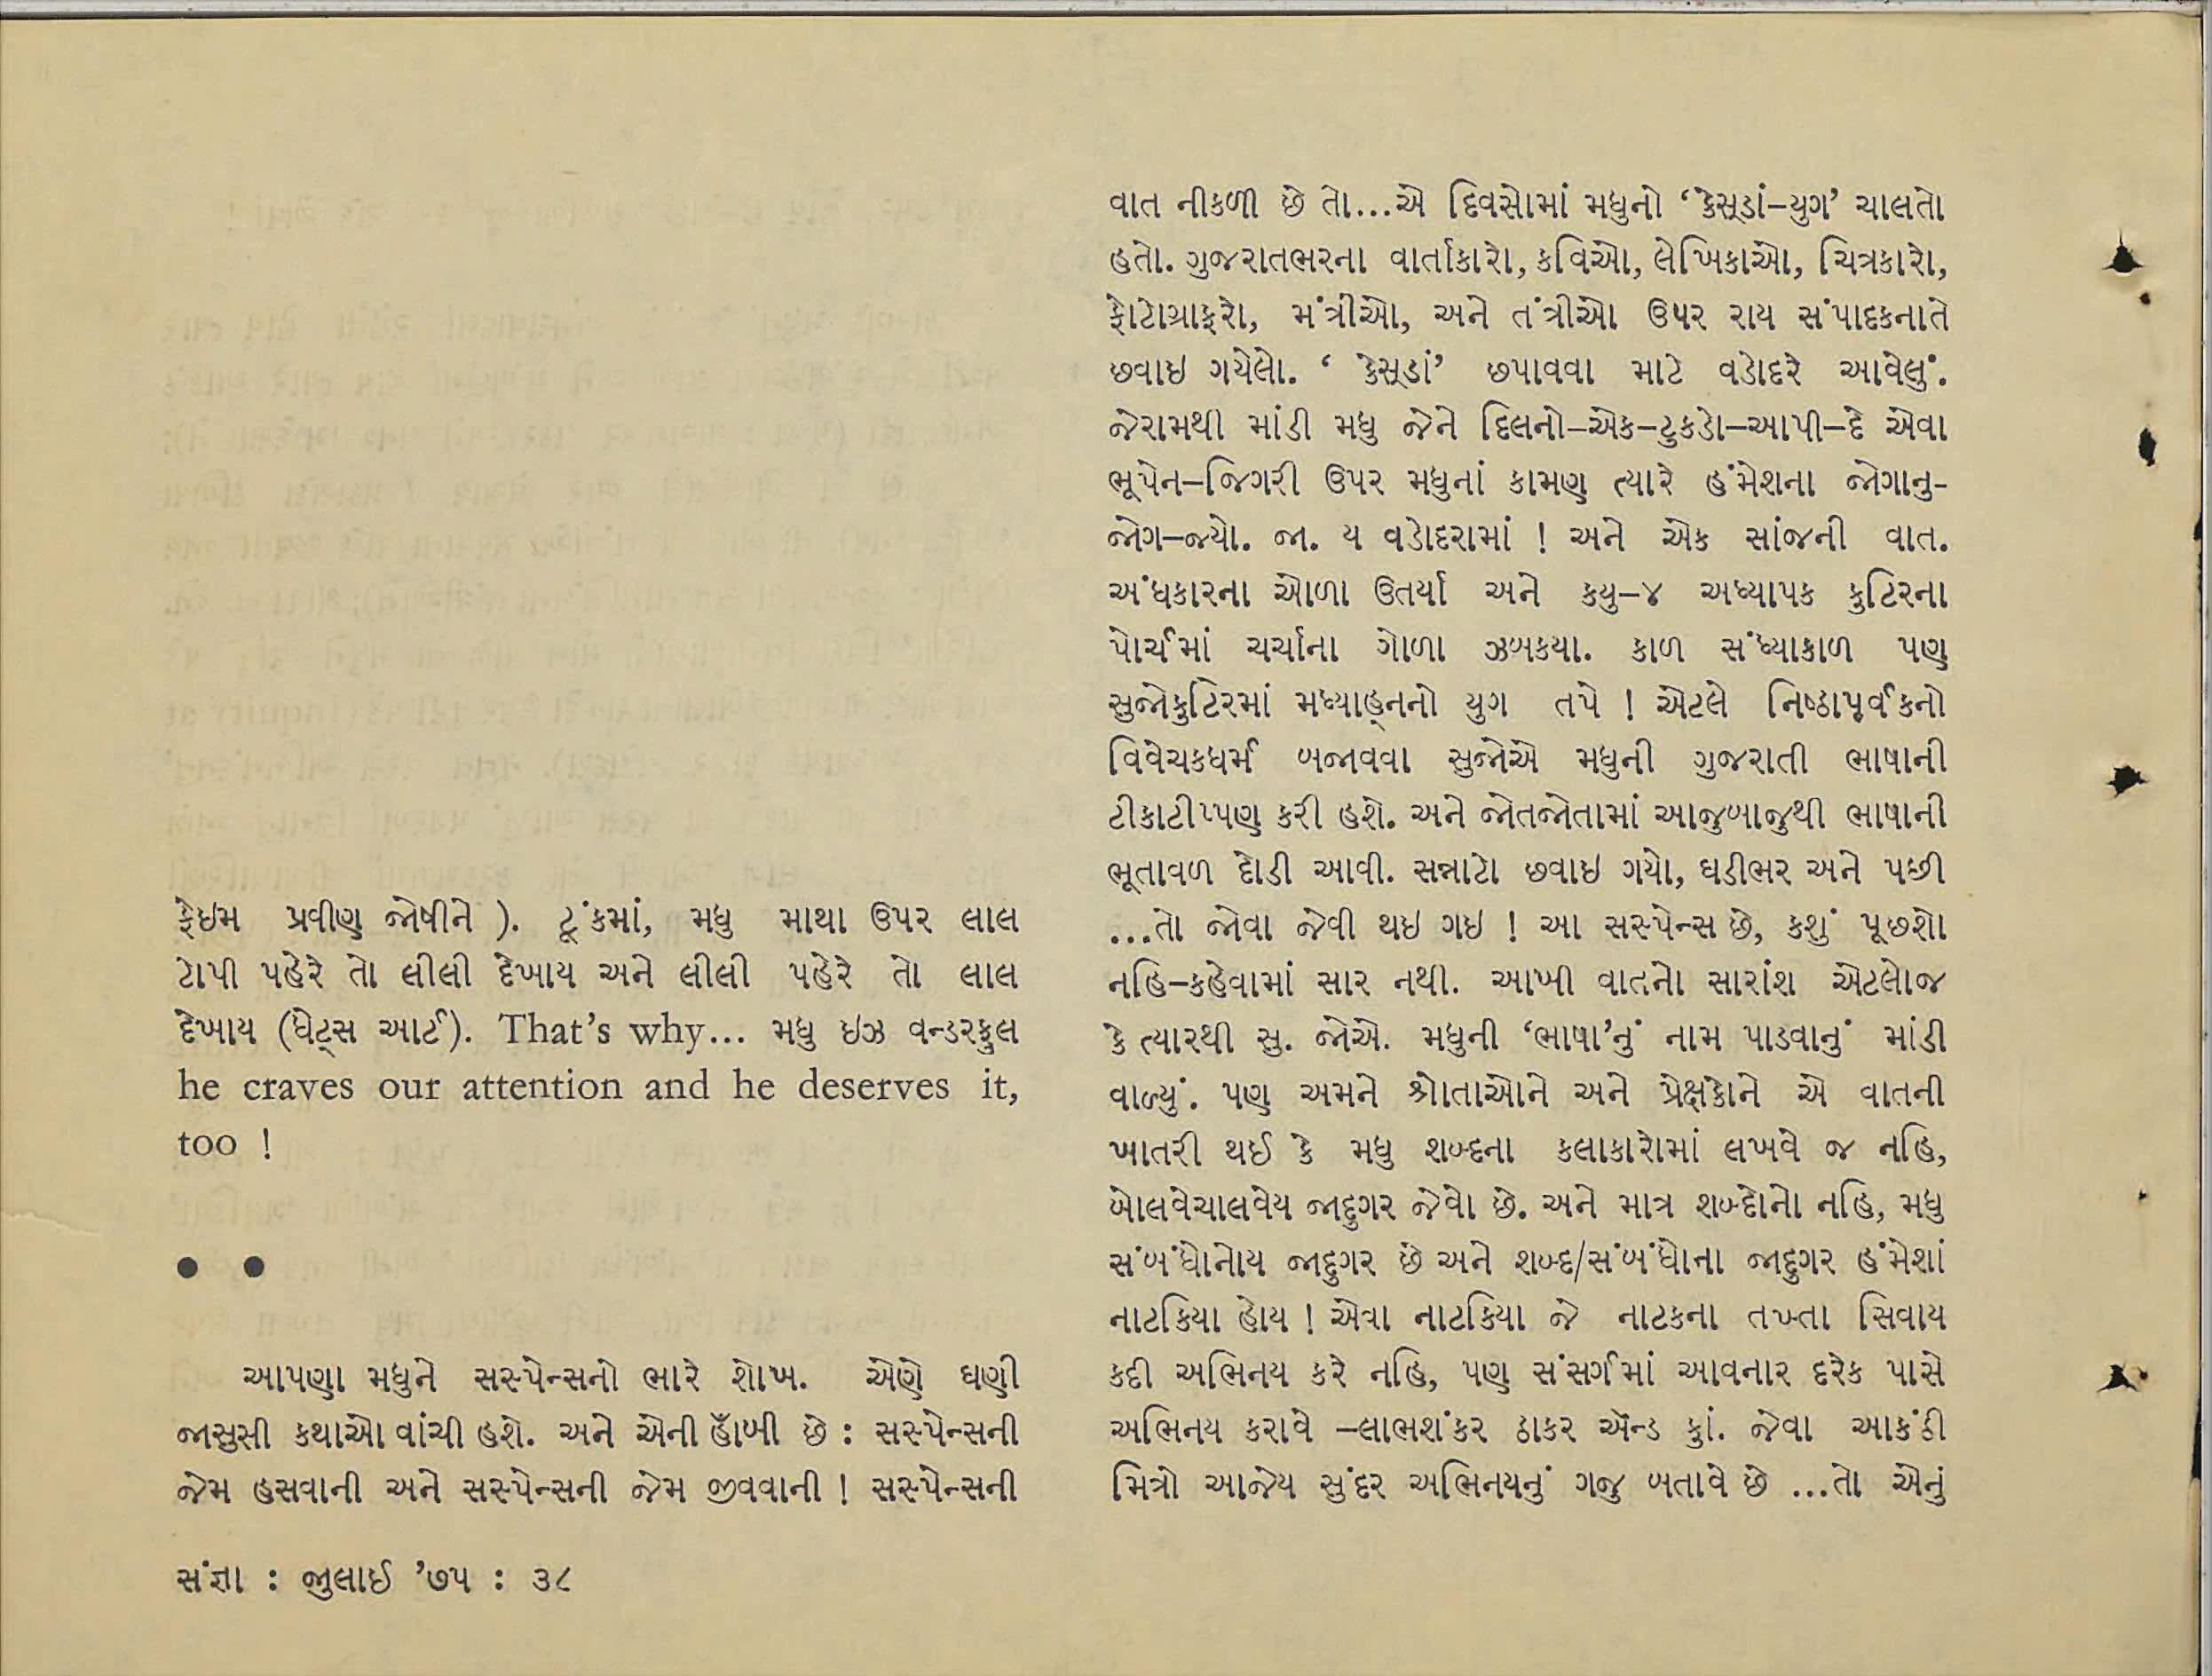 ફેઇમ પ્રવીણ જોષીને ). ટૂંકમાં, મધુ માથા ઉપર લાલ
ટોપી પહેરે તો લીલી દેખાય અને લીલી પહેરે તો લાલ
દેખાય (ધેટ્સ આર્ટ). That's why... મધુ ઇઝ વન્ડરફુલ
he craves our attention and he deserves it,
too !
● ●
આપણા મધુને સસ્પેન્સનો ભારે શોખ. એણે ઘણી
જાસુસી કથાઓ વાંચી હશે. અને એની હૉબી છે : સસ્પેન્સની
જેમ હસવાની અને સસ્પેન્સની જેમ જીવવાની ! સસ્પેન્સની
વાત નીકળી છે તો...એ દિવસોમાં મધુનો ‘કેસૂડાં–યુગ’ ચાલતો
હતો. ગુજરાતભરના વાર્તાકારો, કવિઓ, લેખિકાઓ, ચિત્રકારો,
ફોટોગ્રાફરો, મંત્રીઓ, અને તંત્રીઓ ઉપર રાય સંપાદકનાતે
છવાઇ ગયેલો. ‘ કેસૂડાં’ છપાવવા માટે વડોદરે આવેલું.
જેરામથી માંડી મધુ જેને દિલનો–એક–ટુકડો–આપી–દે એવા
ભૂપેન–જિગરી ઉપર મધુનાં કામણ ત્યારે હંમેશના જોગાનુ-
જોગ–જ્યો. જા. ય વડોદરામાં ! અને એક સાંજની વાત.
અંધકારના ઓળા ઉતર્યા અને કયુ–૪ અધ્યાપક કુટિરના
પોર્ચમાં ચર્ચાના ગોળા ઝબકયા. કાળ સંધ્યાકાળ પણ
સુજોકુટિરમાં મધ્યાહ્નનો યુગ તપે ! એટલે નિષ્ઠાપૂર્વકનો
વિવેચકધર્મ બજાવવા સુજોએ મધુની ગુજરાતી ભાષાની
ટીકાટીપ્પણ કરી હશે. અને જોતજોતામાં આજુબાજુથી ભાષાની
ભૂતાવળ દોડી આવી. સન્નાટો છવાઇ ગયો, ઘડીભર અને પછી
...તો જોવા જેવી થઇ ગઇ ! આ સસ્પેન્સ છે, કશું પૂછશો
નહિ–કહેવામાં સાર નથી. આખી વાતનો સારાંશ એટલોજ
કે ત્યારથી સુ. જોએ. મધુની ‘ભાષા’નું નામ પાડવાનું માંડી
વાળ્યું. પણ અમને શ્રોતાઓને અને પ્રેક્ષકોને એ વાતની
ખાતરી થઈ કે મધુ શબ્દના કલાકારોમાં લખવે જ નહિ,
બોલવેચાલવેય જાદુગર જેવો છે. અને માત્ર શબ્દોનો નહિ, મધુ
સંબંધોનોય જાદુગર છે અને શબ્દ/સંબંધોના જાદુગર હંમેશાં
નાટકિયા હોય ! એવા નાટકિયા જે નાટકના તખ્તા સિવાય
કદી અભિનય કરે નહિ, પણ સંસર્ગમાં આવનાર દરેક પાસે
અભિનય કરાવે –લાભશંકર ઠાકર ઍન્ડ કાું. જેવા આકંઠી
મિત્રો આજેય સુંદર અભિનયનું ગજુ બતાવે છે ...તો એનું
સંજ્ઞા : જુલાઈ ’૭૫ : ૩૮